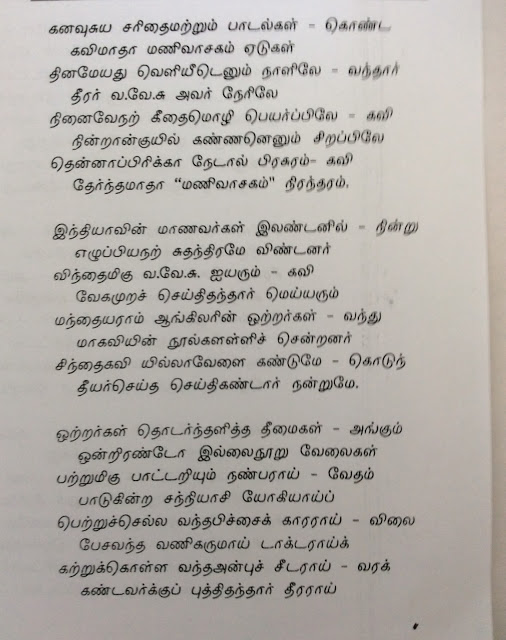 கனவுசுய சரிதைமற்றும் பாடல்கள் = கொண்ட
கவிமாதா மணிவாசகம் ஏடுகள்
தினமேயது வெளியீடெனும் நாளிலே = வந்தார்
தீரர் வ.வே.சு அவர் நேரிலே
நினைவேநற் கீதைமொழி பெயர்ப்பிலே = கவி
நின்றான்குயில் கண்ணனெனும் சிறப்பிலே
தென்னாப்பிரிக்கா நேடால் பிரசுரம்= கவி
தேர்ந்தமாதா “மணிவாசகம்” நிரந்தரம்.
இந்தியாவின் மாணவர்கள் இலண்டனில் = நின்று
எழுப்பியநற் சுதந்திரமே விண்டனர்
விந்தைமிகு வ.வே.சு. ஐயரும் - கவி
வேகமுறச் செய்திதந்தார் மெய்யரும்
மந்தையராம் ஆங்கிலரின் ஒற்றர்கள் - வந்து
மாகவியின் நூல்களள்ளிச் சென்றனர்
சிந்தைகவி யில்லாவேளை கண்டுமே - கொடுந்
தீயர்செய்த செய்திகண்டார் நன்றுமே.
ஒற்றர்கள் தொடர்ந்தளித்த தீமைகள் - அங்கும்
ஒன்றிரண்டோ இல்லைநூறு வேலைகள்
பற்றுமிகு பாட்டறியும் நண்பராய் - வேதம்
பாடுகின்ற சந்நியாசி யோகியாய்ப்
பெற்றுச்செல்ல வந்தபிச்சைக் காரராய் - விலை
பேசவந்த வணிகருமாய் டாக்டராய்க்
கற்றுக்கொள்ள வந்தஅன்புச் சீடராய் - வரக்
கண்டவர்க்குப் புத்திதந்தார் தீரராய்